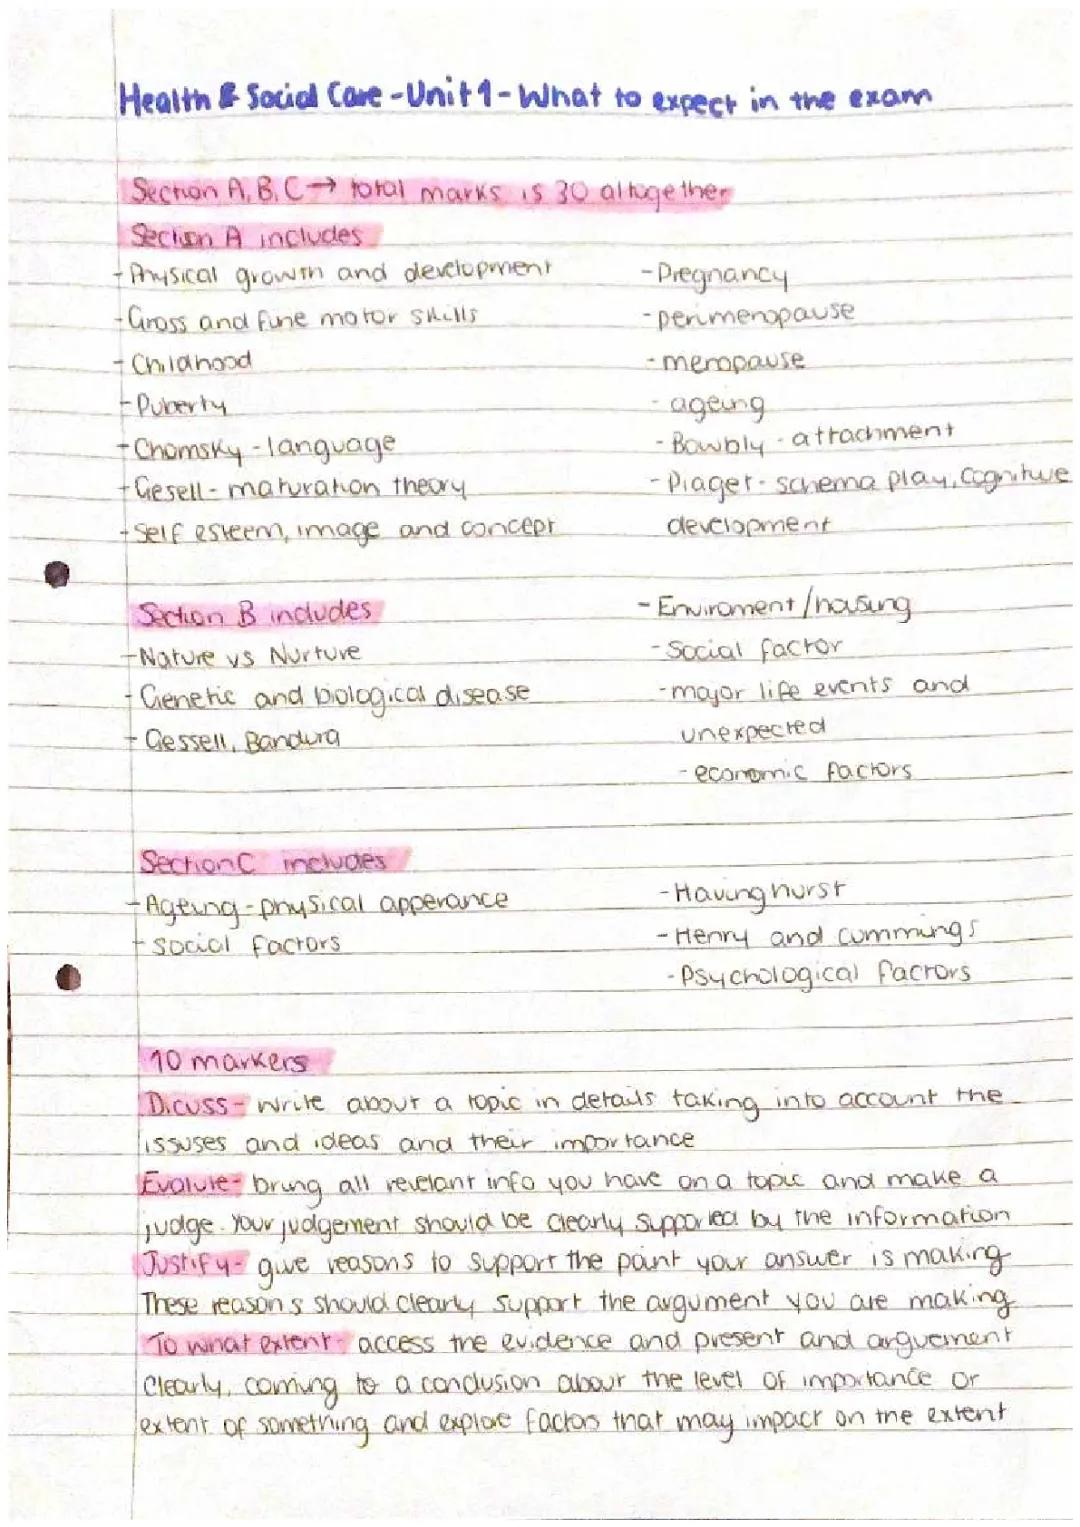 Health & Social Care - Unit 1 - What to expect in the exam
Section A, B, C → total marks is 30 altogether
Section A includes
- Physical growth and development
- Gross and fine motor skills
- Childhood
- Puberty
- Chomsky - language
- Gesell - maturation theory
- Self esteem, image and concept
- Pregnancy
- perimenopause
- menopause
- ageing
- Bowbly - attachment
- Piaget - schema play, Cognitive
development
Section B includes
- Nature vs Nurture
- Genetic and biological disease
- Gessell, Bandura
- Enviroment / housing
- Social factor
- major life events and
unexpected
- economic factors
Section C includes
- Ageing - physical apperance
- Social factors
- Havinghurst
- Henry and cummings
- Psychological factors
10 markers
Dicuss - write about a topic in details taking into account the
issuses and ideas and their importance
Evalute - bring all revelant info you have on a topic and make a
judge. Your judgement should be clearly supported by the information
Justify - give reasons to support the point your answer is making
These reasons should clearly support the argument you are making
To what extent - access the evidence and present and arguement
clearly, coming to a conclusion about the level of importance or
extent of something and explore factors that may impact on the extent